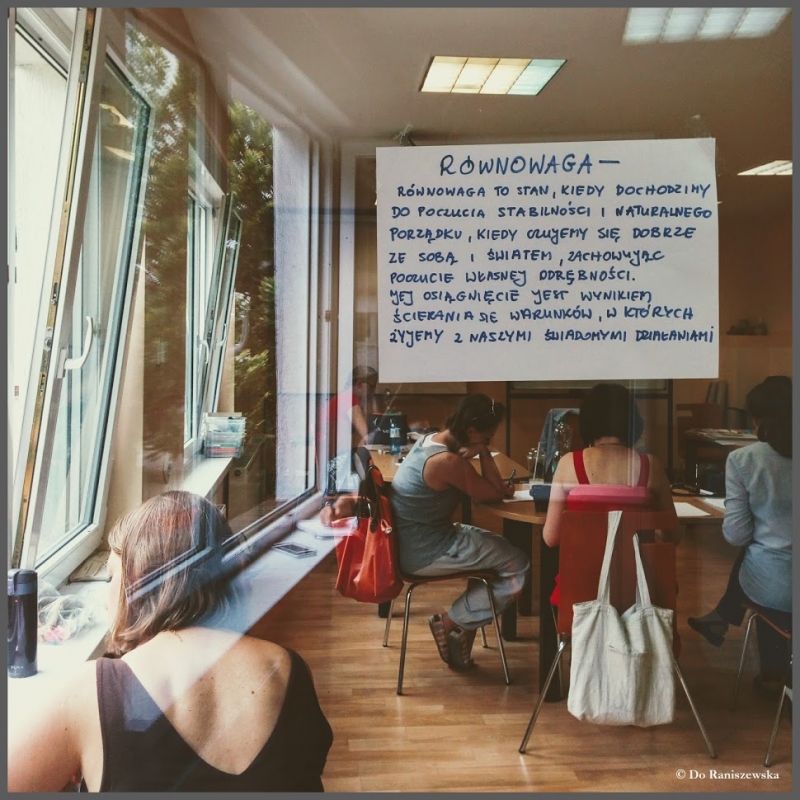 RÓWNOWAGA —
RÓWNOWAGA TO STAN, KIEDY DOCHODZIMY
DO POCZUCIA STABILNOŚCI I NATURALNEGO
PORZĄDKU, KIEDY CZUJEMY SIĘ DOBRZE
ZE SOBĄ I ŚWIATEM, ZACHOWUJĄC
POCZUCIE WŁASNEJ ODRĘBNOŚCI.
JEJ OSIĄGNIĘCIE JEST WYNIKIEM
ŚCIERANIA SIĘ WARUNKÓW, W KTÓRYCH
ŻYJEMY Z NASZYMI ŚWIADOMYMI DZIAŁANIAMI
© Do Raniszewska